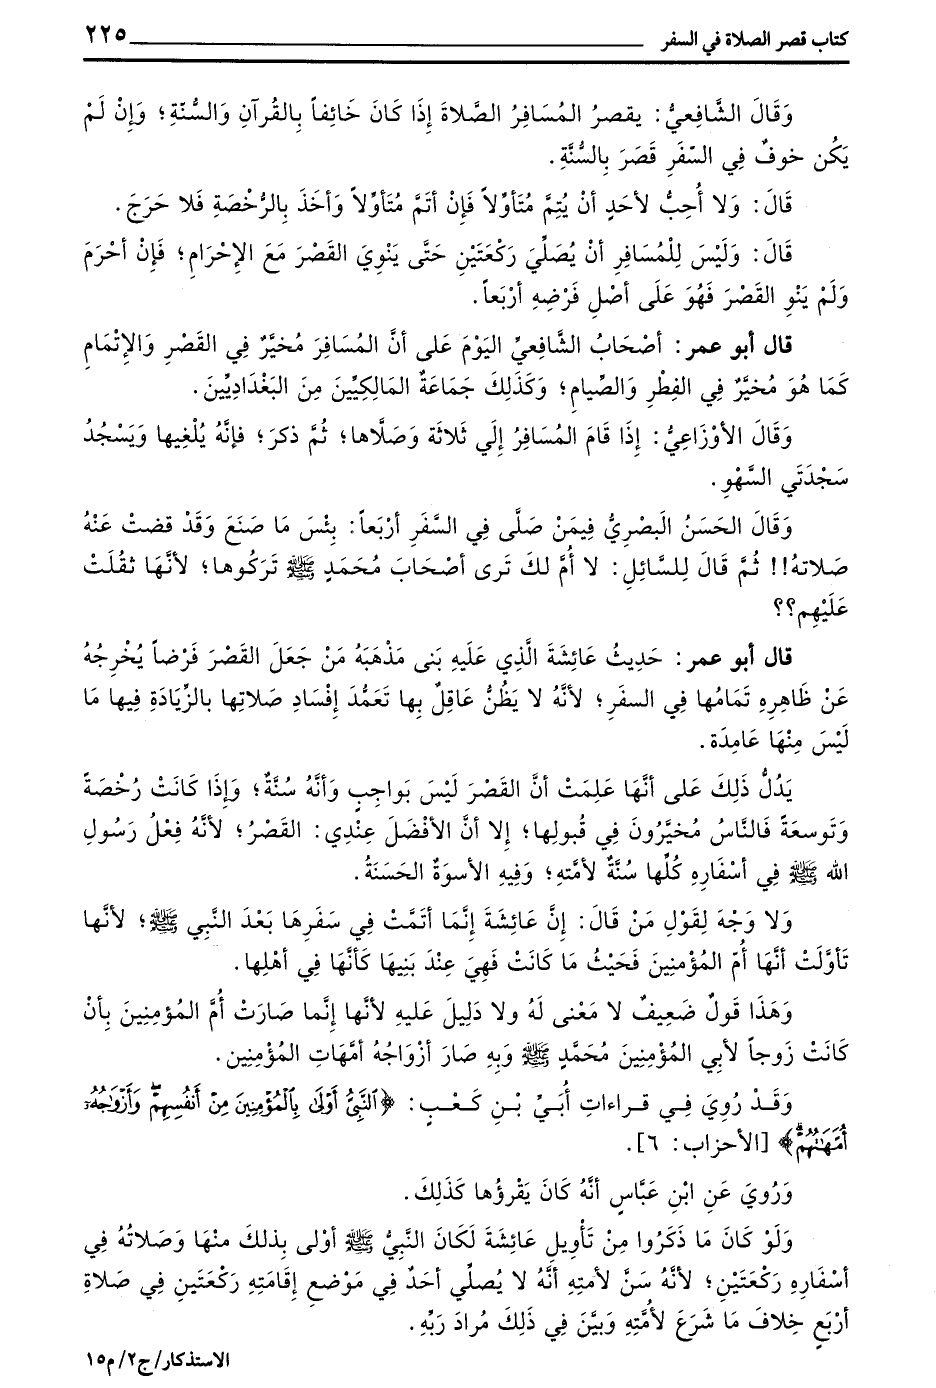 كتاب قصر الصلاة في السفر ٢٢٥
وَقَالَ الشَّافِعيُّ: يقصرُ المُسَافِرُ الصَّلاةَ إِذَا كَانَ خَائِفاً بِالقُرآنِ وَالسُّنّةِ؛ وَإِنْ لَمْ
يَكُن خوفٌ فِي السَّفَرِ قَصَرَ بِالسُّنَّةِ.
قَالَ: وَلا أُحِبُّ لأحَدٍ أنْ يُتِمَّ مُتَأوِّلاً فَإِنْ أتَمَّ مُتَأوِّلاً وَأخَذَ بِالرُّخْصَةِ فَلا حَرَجَ.
قَالَ: وَلَيْسَ لِلْمُسَافِرِ أنْ يُصَلِّيَ رَكْعَتَيْنِ حَتَّى يَنْوِيَ القَصْرَ مَعَ الإِحْرَامِ؛ فَإِنْ أحْرَمَ
وَلَمْ يَنْوِ القَصْرَ فَهُوَ عَلَى أصْلِ فَرْضِهِ أرْبَعاً.
قال أبو عمر: أصْحَابُ الشَّافِعيِّ اليَوْمَ عَلى أنَّ المُسَافِرَ مُخيَّرٌ فِي القَصْرِ وَالإِتْمَامِ
كَمَا هُوَ مُخيَّرٌ فِي الفِطْرِ وَالصِّيامِ؛ وَكَذَلِكَ جَمَاعَةُ المَالِكِيِّينَ مِنَ البَغْدَادِيِّينَ.
وَقَالَ الأوْزَاعِيُّ: إِذَا قَامَ المُسَافِرُ إِلَي ثَلاثَة وَصَلَّاها؛ ثُمَّ ذكرَ؛ فإنَّهُ يُلْغِيها وَيَسْجُدُ
سَجْدَتَي السَّهْوِ.
وَقَالَ الحَسَنُ البَصْرِيُّ فِيمَنْ صَلَّى فِي السَّفَرِ أرْبَعاً: بِئْسَ مَا صَنَعَ وَقَدْ قضتْ عَنْهُ
صَلاتهُ!! ثُمَّ قَالَ لِلسَّائِلِ: لا أُمَّ لكَ تَرى أصْحَابَ مُحَمَدٍ ﷺ تَرَكُوها؛ لأنَّهَا ثقُلَتْ
عَلَيْهِم؟؟
قال أبو عمر: حَدِيثُ عَائِشَةَ الَّذِي عَلَيهِ بَنى مَذْهَبَهُ مَنْ جَعَلَ القَصْرَ فَرْضاً يُخْرِجُهُ
عَنْ ظَاهِرِهِ تَمَامُها فِي السفَرِ؛ لأنَّهُ لا يَظُنُّ عَاقِلٌ بِها تَعَمُّدَ إِفْسَادِ صَلاتِها بالزِّيَادَةِ فِيها مَا
لَيْسَ مِنْهَا عَامِدَة.
يَدُلُّ ذَلِكَ عَلى أنَّهَا عَلِمَتْ أنَّ القَصْرَ لَيْسَ بَواجِبٍ وَأنَّهُ سُنَّةٌ؛ وَإِذَا كَانَتْ رُخْصَةً
وَتَوسعَةً فَالنَّاسُ مُخيَّرُونَ فِي قُبولِها؛ إلا أنَّ الأفْضَلَ عِنْدِي: القَصْرُ؛ لأنَّهُ فِعْلُ رَسُولِ
الله ﷺ فِي أسْفَارِهِ كُلِّها سُنَّةٌ لأمّتهِ؛ وَفِيهِ الأسوَةُ الحَسَنَةُ.
وَلا وَجْهَ لِقَوْلِ مَنْ قَالَ: إِنَّ عَائِشَةَ إِنَّمَا أتمَّتْ فِي سَفَرِهَا بَعْدَ النَّبِي ﷺ؛ لأنَّها
تَأوَّلَتْ أنَّهَا أُمّ المُؤْمِنِينَ فَحَيْثُ مَا كَانَتْ فَهِيَ عِنْدَ بَنِيهَا كَأنَّهَا فِي أهْلِها.
وَهَذَا قَولٌ ضَعِيفٌ لا مَعْنى لَهُ ولا دَلِيلَ عَليهِ لأنَّها إِنَّما صَارَتْ أُمَّ المُؤمِنِينَ بِأنْ
كَانَتْ زَوجاً لأبِي المُؤْمِنِينَ مُحَمَّدٍ ﷺ وَبِهِ صَارَ أزْوَاجُهُ أمَّهَاتِ المُؤْمِنِين.
وَقَـدْ رُوِيَ فِـي قـراءاتِ أُبَـيِّ بْـنِ كَـعْـبٍ: ﴿ٱلنَّبِيُّ أَوْلَىٰ بِٱلْمُؤْمِنِينَ مِنْ أَنفُسِهِمْۖ وَأَزْوَٰجُهُۥٓ
أُمَّهَٰتُهُمْۗ﴾ [الأحزاب: ٦].
وَرُويَ عَنِ ابْنِ عَبَّاسٍ أنَّهُ كَانَ يَقْرؤُها كَذَلِكَ.
وَلَوْ كَانَ مَا ذَكَرُوا مِنْ تَأْوِيلِ عَائِشَةَ لَكَانَ النَّبِيُّ ﷺ أوْلى بِذلكَ منْهَا وَصَلاتُهُ فِي
أسْفَارِهِ رَكْعَتَيْنِ؛ لأنَّهُ سَنَّ لأمتِهِ أنَّهُ لا يُصلِّي أحَدٌ فِي مَوْضعِ إِقَامَتِهِ رَكْعَتَينِ فِي صَلاةِ
أرْبَعٍ خِلافَ مَا شَرَعَ لأُمَّتِهِ وَبيَّنَ فِي ذَلِكَ مُرادَ رَبِّهِ.
الاستذكار/ ج٢/ م١٥